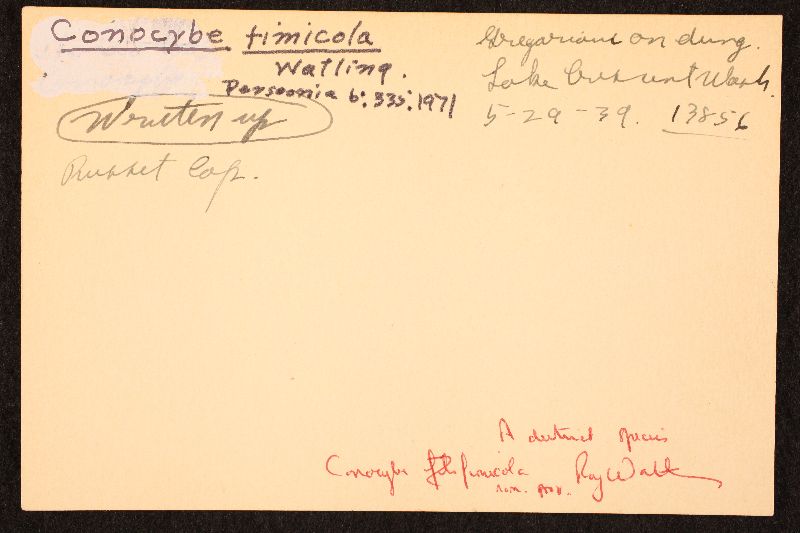 Conocybe fimicola
Watling.
Persoonia 6: 335: 1971
Written up
Russet Cap.
Gregarious on dung.
Lake Crescent Wash.
5-29-39. 13856
A distinct species
Conocybe fimicola Roy Watling
nom. prov.